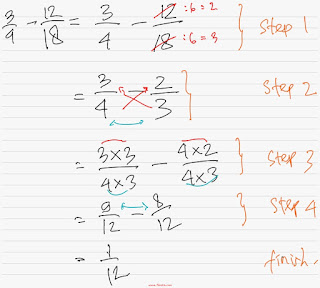 3/4 - 12/18 = 3/4 - 12/18 :6=2 :6=3 } Step 1
= 3/4 - 2/3 } Step 2
= 3×3/4×3 - 4×2/4×3 } Step 3
= 9/12 - 8/12 } Step 4
= 1/12 finish.